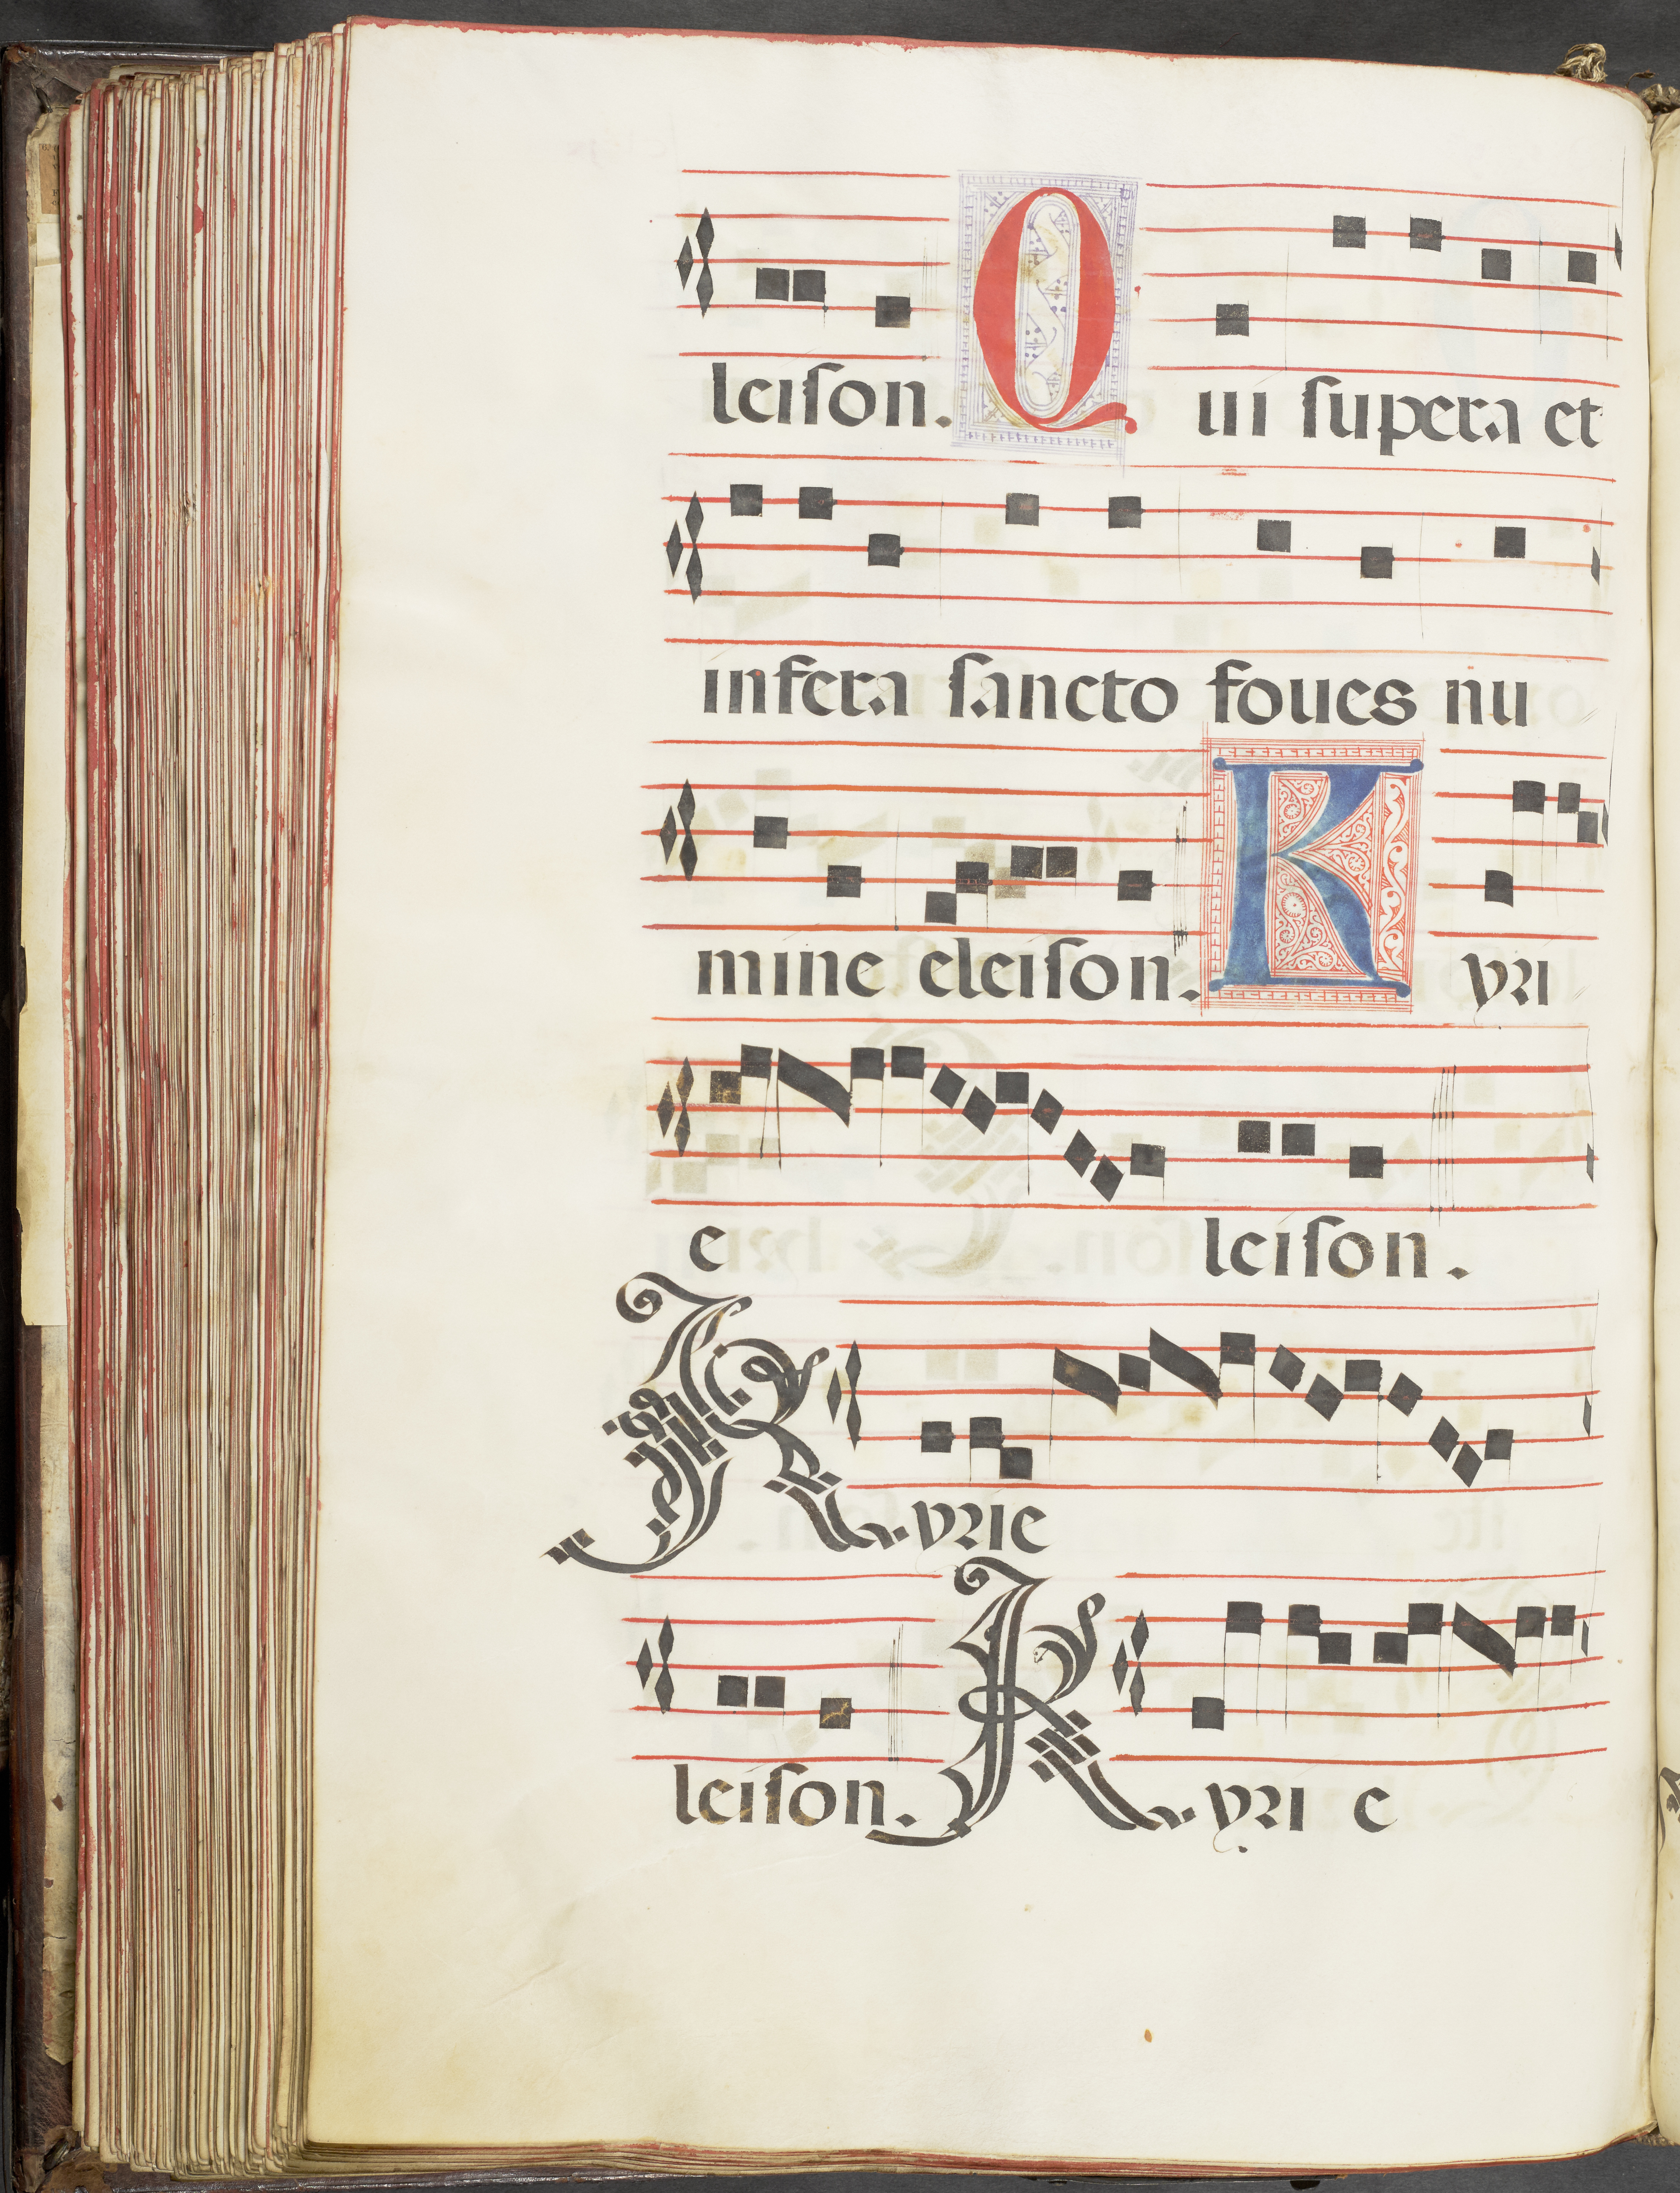 leiſon. Qui ſupera et
infera ſancto foues nu
mine eleiſon. Kyri
e leiſon.
Kyrie
leiſon. Kyri e